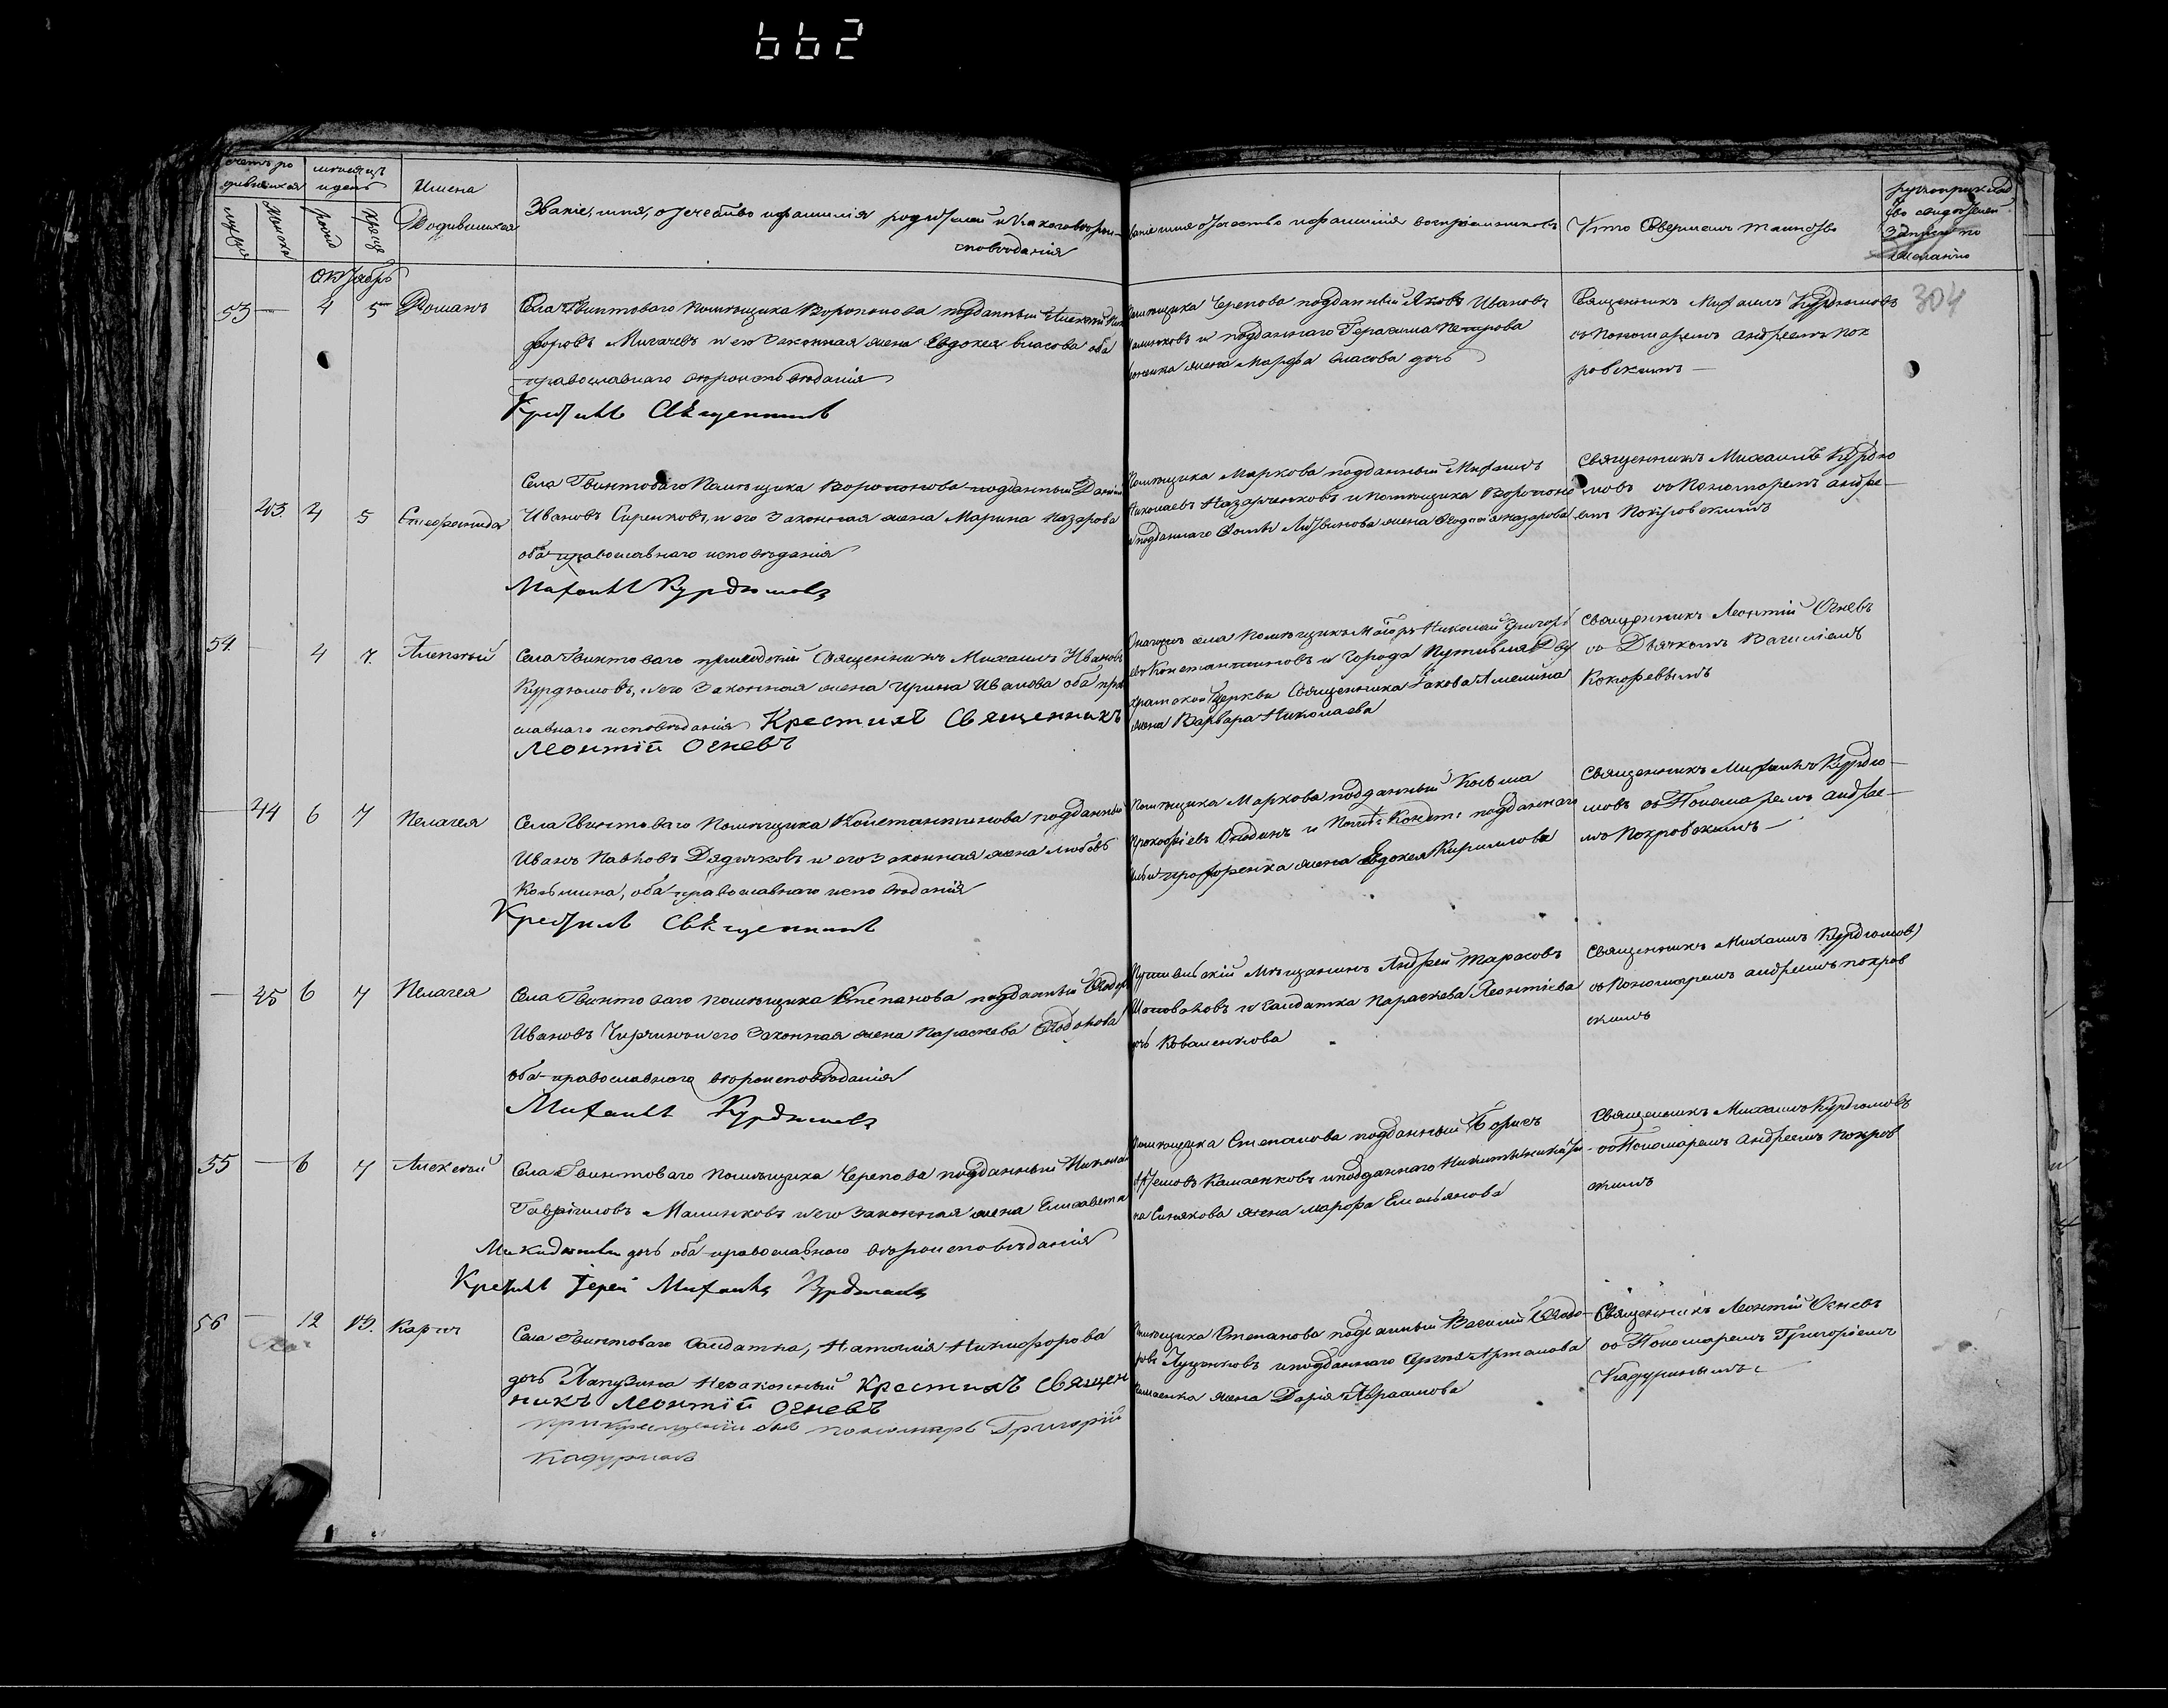 662
счетъ ро
дившихся
мѣсяцъ
и день
Имена
Родившихся
мужеск
женска
рожд
крещ
Званіе, имя, отечество и фамилія родителей и какого вѣрои-
сповѣданія
Званіе имя отечество и фамилія воспріемниковъ
Кто Совершалъ таинство
рукоприклад
ство свидѣтелей
записи по
желанію
304
Октябрь
53 — 4 5 Романъ
Села Гвинтоваго помѣщика Воропонова подданный Алексѣй Ники
форовъ Михачевъ и его Законная жена Евдокея Власова оба
православнаго вѣроисповѣданія
Крестилъ Священникъ
Помѣщика Черепова подданный Яковъ Ивановъ
Малинковъ и подданнаго Герасима Петрова
жена Марфа Власова дочь
Священникъ Михаилъ Курдюмовъ
съ пономаремъ андреемъ пок
ровскимъ —
43 4 5 Стефанида
Села Гвинтоваго Помѣщика Воропонова подданный Даніилъ
Ивановъ Сиренковъ, и его Законная жена Марина Назарова
оба православнаго исповѣданія
Михаилъ Курдюмовъ
Помѣщика Маркова подданный Михаилъ
Николаевъ Назарченковъ и помѣщика Воропоно
подданнаго Фомы Литвинова жена Ѳеодосія назарова
Священникъ Михаилъ Курдю
мовъ съ Пономаремъ андре-
емъ Покровскимъ
54 — 4 7 Алексѣй
Села Гвинтоваго приходскій Священникъ Михаилъ Ивановъ
Курдюмовъ, и его Законная жена Ирина Иванова оба право
славнаго исповѣданія Крестилъ Священникъ
Леонтій Огневъ
села Помѣщикъ Маіоръ Николай Григорі
евъ Константиновъ и Города Путивля
храмской Церкви Священника Іакова Амелина
жена Варвара Николаева
Священникъ Леонтій Огневъ
съ Дьячкомъ Василіемъ
Кокоревымъ
— 44 6 7 Пелагея
Села Гвинтоваго Помѣщика Константинова подданный
Иванъ Павловъ Дядичковъ и его законная жена любовь
Козьмина, оба православнаго исповѣданія
Крестилъ Священникъ
Помѣщика Маркова подданный Козьма
Прокофіевъ и Помѣ: Конст: подданнаго
жена Евдокея Кирилова
Священникъ Михаилъ Курдю-
мовъ съ Пономаремъ андрее-
мъ Покровскимъ —
— 45 6 7 Пелагея
Села Гвинтоваго помѣщика Степанова подданный Ѳедоръ
Ивановъ и его Законная жена Параскева
оба православнаго вѣроисповѣданія
Михаилъ Курдюмовъ
Путивльскій Мѣщанинъ Андрей Тарасовъ
Шаповаловъ и Солдатка Параскева Леонтіева
дочь Коваленкова
Священникъ Михаилъ Курдюмовъ
съ Пономаремъ андреемъ покров
скимъ
55 — 6 7 Алексѣй
Села Гвинтоваго помѣщика Черепова подданный Николай
Гавріиловъ Малинковъ и его законная жена Елисавета
дочь оба православнаго вѣроисповѣданія
Крестилъ Іерей Михаилъ Курдюмовъ
Помѣщика Степанова подданный Борисъ
Артемовъ Камаенковъ и подданнаго
на Синякова жена марфа Емельянова
Священникъ Михаилъ Курдюмовъ
- съ Пономаремъ андреемъ покров
скимъ
56 — 12 13. Карпъ
Села Гвинтоваго Солдатка, Наталія Никифорова
дочь Лапузина Незаконный Крестилъ Священ
никъ Леонтій Огневъ
при крещеніи былъ пономарь Григорій
Кадуринъ
Помѣщика Степанова подданный Василій Ѳедо-
ровъ Луценковъ и подданнаго Сергѣя Артамова
Камаенка жена Дарія Авраамова
Священникъ Леонтій Огневъ
съ Пономаремъ Григоріемъ
Кадуринымъ